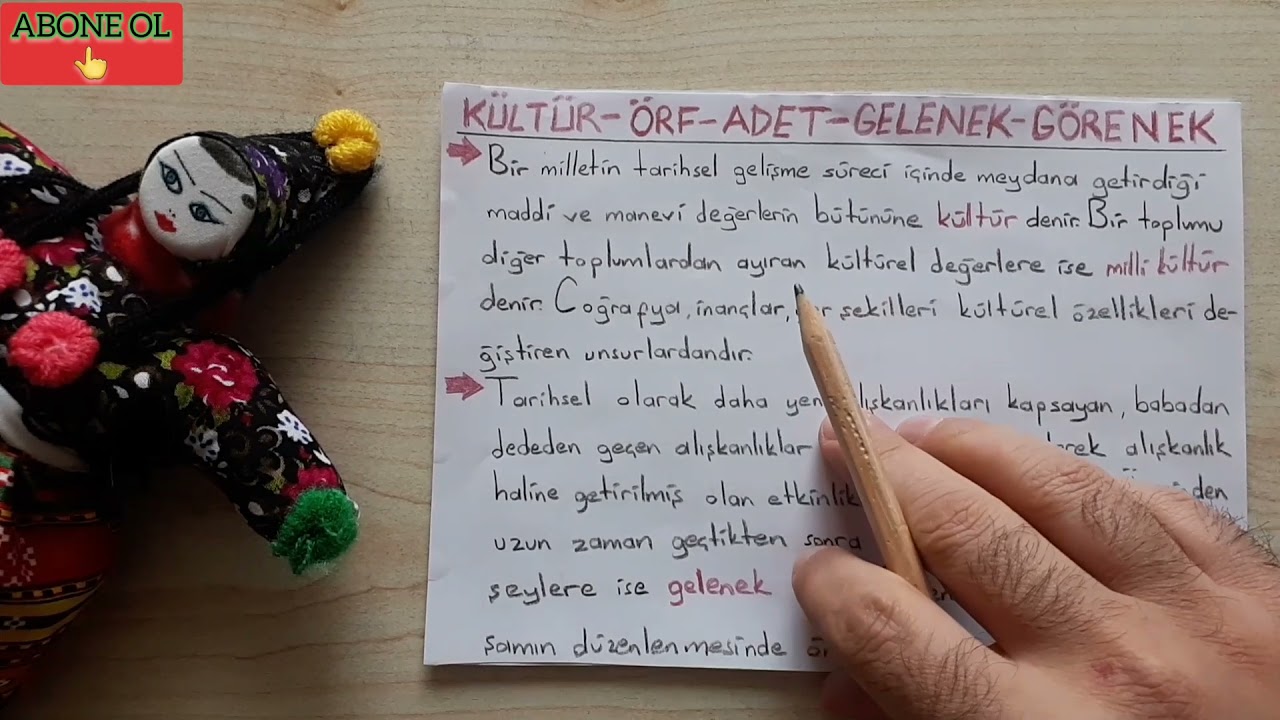 ABONE OL
KÜLTÜR-ÖRF-ADET-GELENEK-GÖRENEK
Bir milletin tarihsel gelişme süreci içinde meydana getirdiği
maddi ve manevi değerlerin bütününe kültür denir. Bir toplumu
diğer toplumlardan ayıran kültürel değerlere ise milli kültür
denir. Coğrafya, inançlar, şekilleri kültürel özellikleri de-
ğiştiren unsurlardandır.
Tarihsel olarak daha alışkanlıkları kapsayan, babadan
dededen geçen alışkanlıklar alışkanlık
haline getirilmiş olan
uzun zaman geçtikten sonra
şeylere ise gelenek
şamın düzenlenmesinde